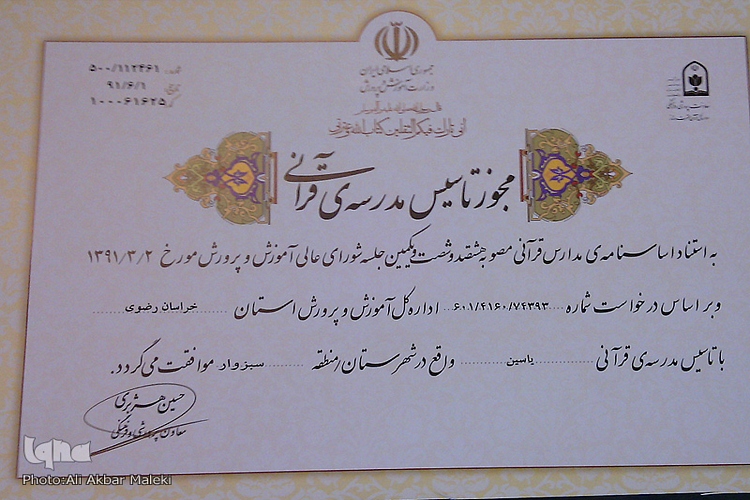 جمهوری اسلامی ایران
وزارت آموزش و پرورش
شماره: ۵۰۰/۱۱۲۴۶۱
تاریخ: ۹۱/۶/۱
کد: ۱۰۰۰۶۱۶۲۵
انی تارک فیکم الثقلین کتاب الله و عترتی
مجوز تاسیس مدرسه‌ی قرآنی
به استناد اساسنامه‌ی مدارس قرآنی مصوبه هشتصد و شصت و یکمین جلسه شورای عالی آموزش و پرورش مورخ ۱۳۹۱/۳/۲
و بر اساس درخواست شماره ۶۰۱/۴۱۶۰/۷۴۳۹۳ اداره کل آموزش و پرورش استان خراسان رضوی
با تاسیس مدرسه‌ی قرآنی یاسین واقع در شهرستان/منطقه سبزوار موافقت می گردد.
حسین هژبری
معاون پرورشی و فرهنگی
iqna
Photo:Ali Akbar Maleki